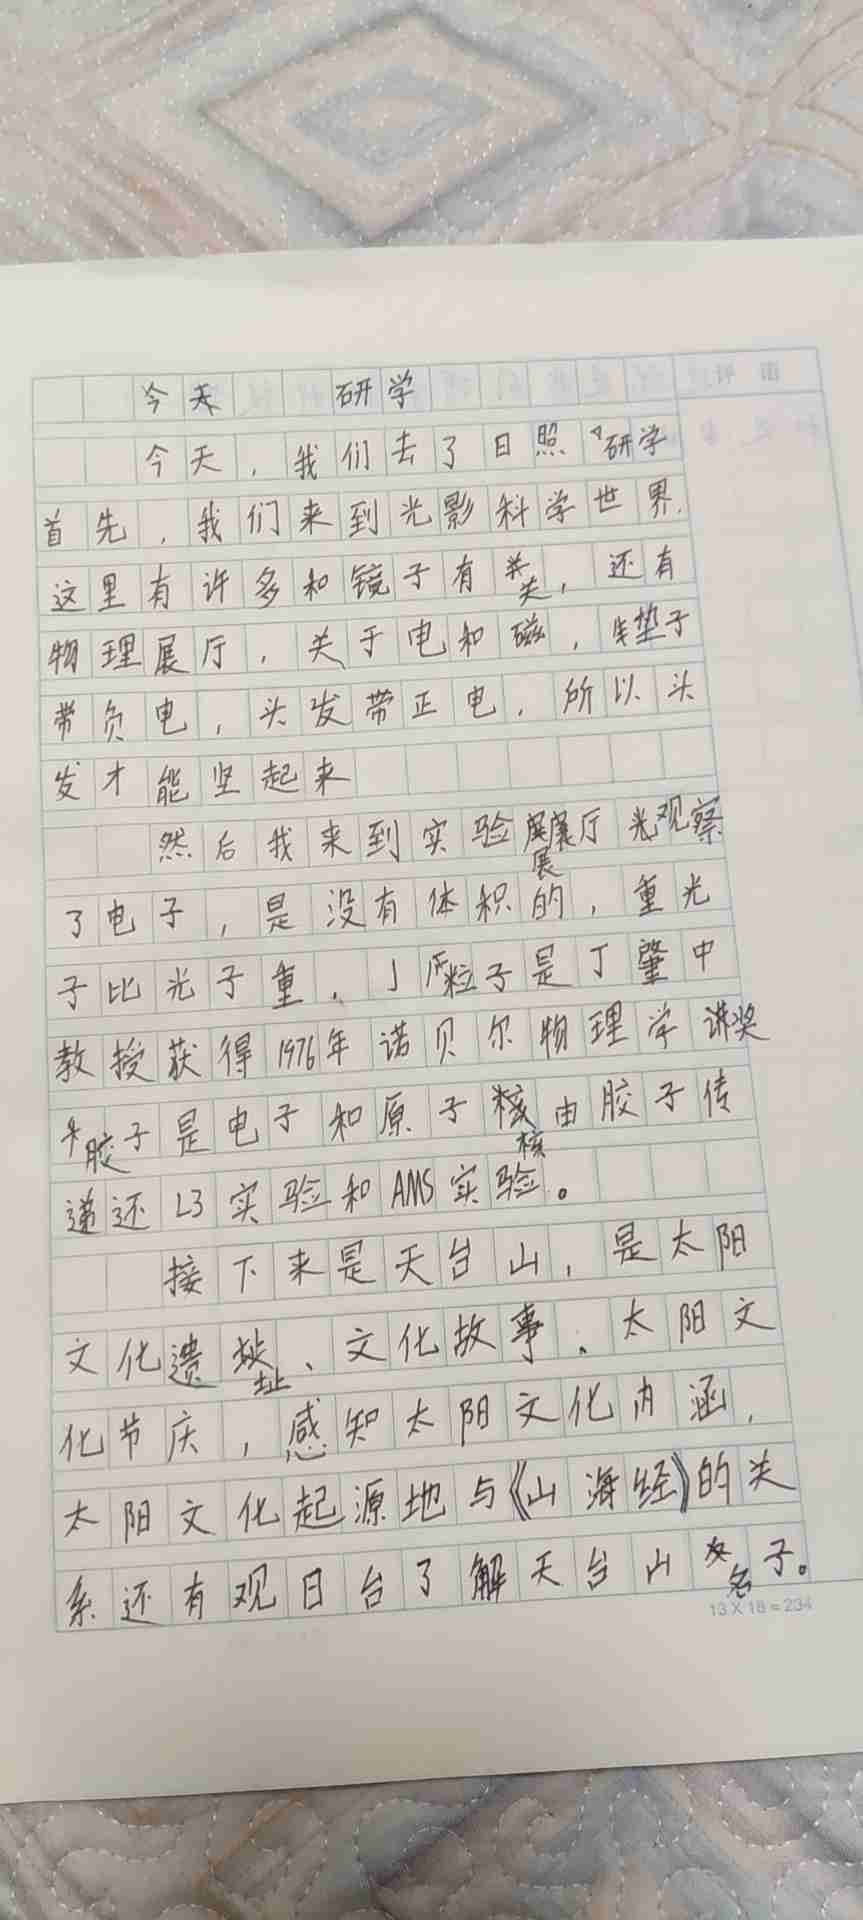 今天 研学
今天，我们去了日照研学
首先，我们来到光影科学世界.
这里有许多和镜子有关，还有
物理展厅，关于电和磁，垫子
带负电，头发带正电，所以头
发才能坚起来
然后我来到实验展厅光观察
了电子，是没有体积的，重光
子比光子重，J粒子是丁肇中
教授获得1976年诺贝尔物理学奖
胶子是电子和原子核由胶子传
递还L3实验和AMS实验。
接下来是天台山，是太阳
文化遗址、文化故事、太阳文
化节庆，感知太阳文化内涵，
太阳文化起源地与《山海经》的关
系还有观日台了解天台山名子。
13×18=234